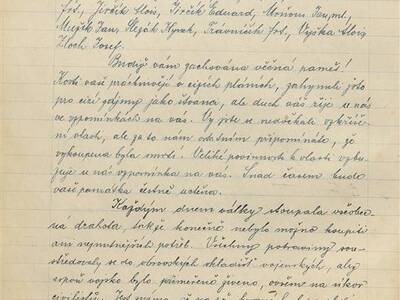 frt., Jirčík Alois, Jirčík Eduard, Moňom Jan, ml.,
Mužík Jan, Slezák Hynek, Trávníček frt., Vyška Alois
Zloch Josef.
Budiž vám zachována věčná paměť!
Kosti vaše práchnivějí v cizích pláních, zahynuli jste
pro cizí zájmy jako štvána, ale duch váš žije u nás
ve vzpomínkách na vás. Vy jste se nedočkali vzkříše-
ní vlasti, ale za to nám ostatním připomínáte, že
vykoupena byla smrtí! Veliké povinnosti k vlasti vzbu-
zuje u nás vzpomínka na vás. Snad časem bude
vaše památka čestně uctěna.
Každým dnem války stoupala všeobec-
ná drahota, takže konečně nebylo možno koupiti
ani nejnutnějších potřeb. Všechny potraviny sou-
středovaly se do obrovských skladišť vojenských, aby
vojsko bylo přiměřeně živeno, ovšem na úkor